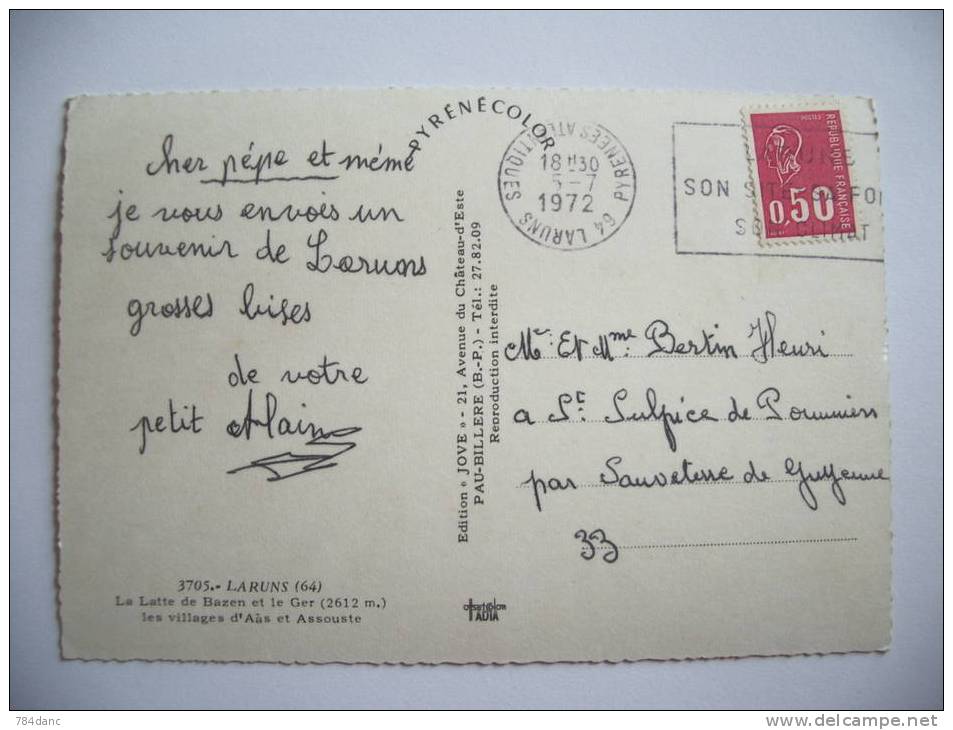 PYRÉNÉCOLOR
cher pépe et méme
je vous envois un
souvenir de Laruns
grosses bises
de votre
petit Alain
3705.- LARUNS (64)
La Latte de Bazen et le Ger (2612 m.)
les villages d'Aàs et Assouste
Edition « JOVE » - 21, Avenue du Château-d'Este
PAU-BILLERE (B.-P.) - Tél.: 27.82.09
Reproduction interdite
64 LARUNS PYRENEES ATLANTIQUES
18 H30
5-7
1972
SON
POSTES
REPUBLIQUE FRANÇAISE
0,50
Mr. Et Mme. Bertin Henri
a St. Sulpice de Poumiers
par Sauveterre de Guyenne
33
784danc
delcampe.net